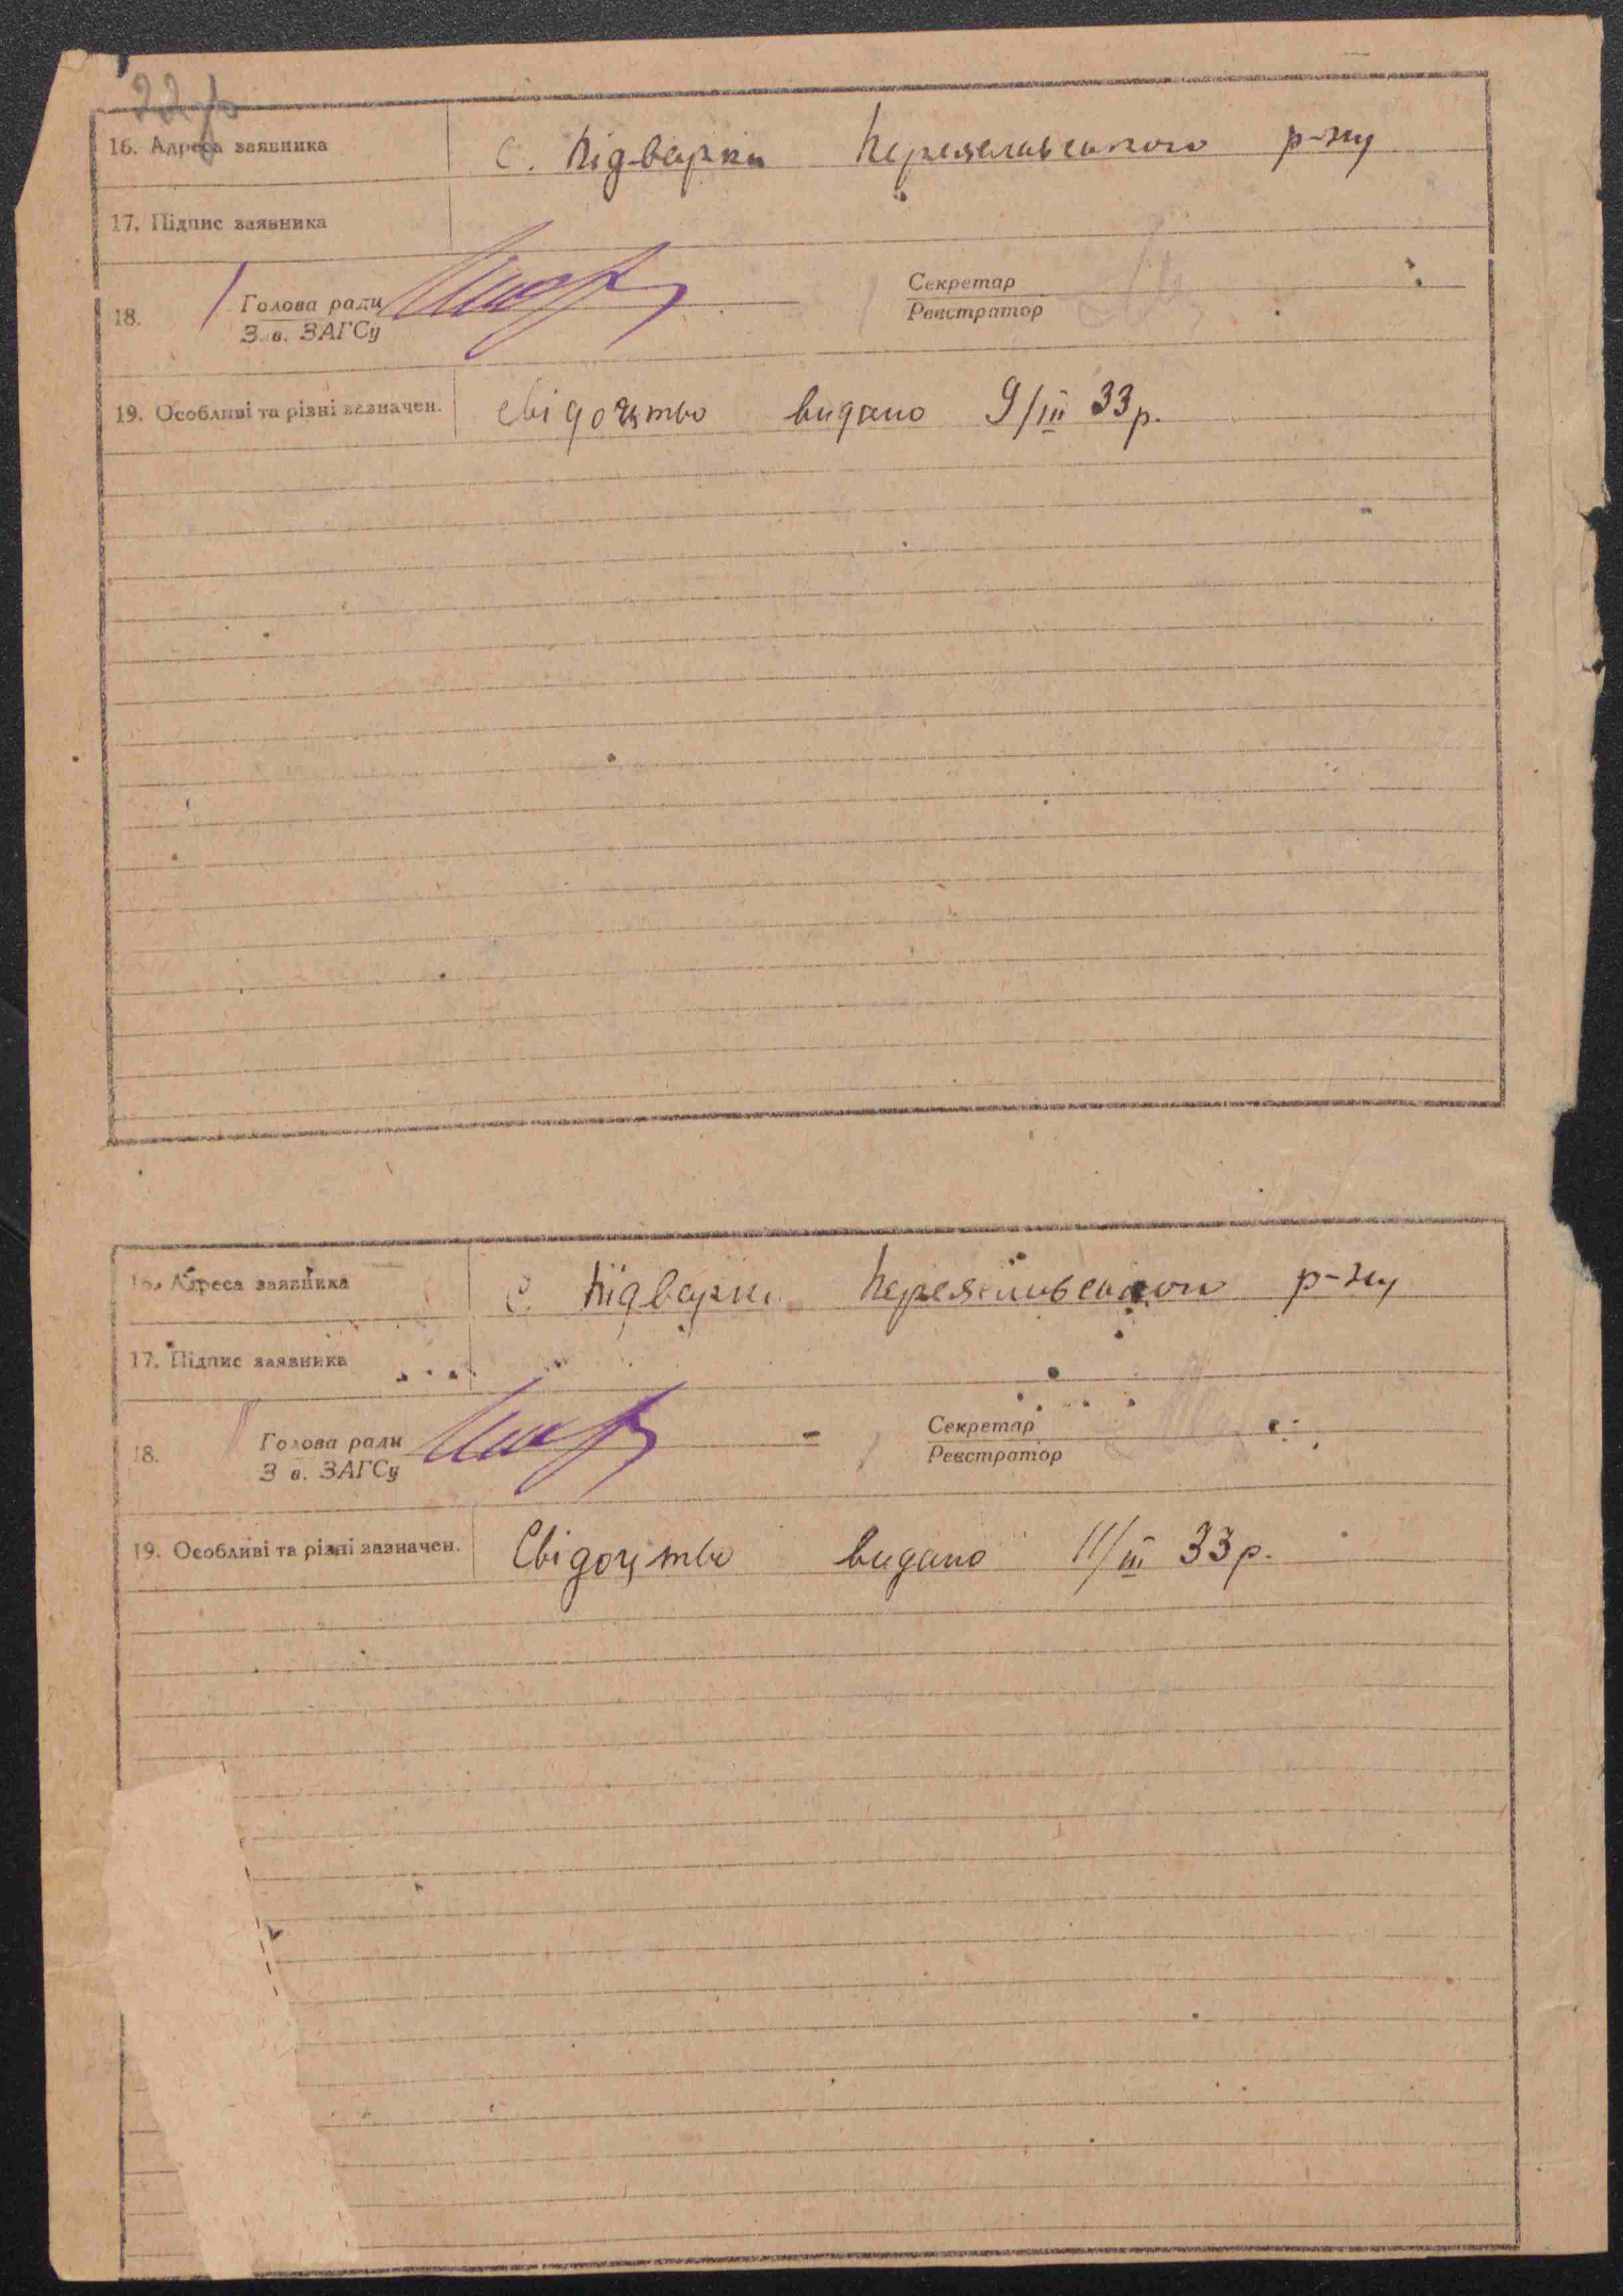 16. Адреса заявника с. Підварки Переяславського р-ну
17. Підпис заявника
18. Голова ради Секретар
Зав. ЗАГСу Реєстратор
19. Особливі та різні зазначен. свідоцтво видано 9/III 33 р.
16. Адреса заявника с. Підварки Переяславського р-ну
17. Підпис заявника
18. Голова ради Секретар
Зав. ЗАГСу Реєстратор
19. Особливі та різні зазначен. Свідоцтво видано 11/III 33 р.